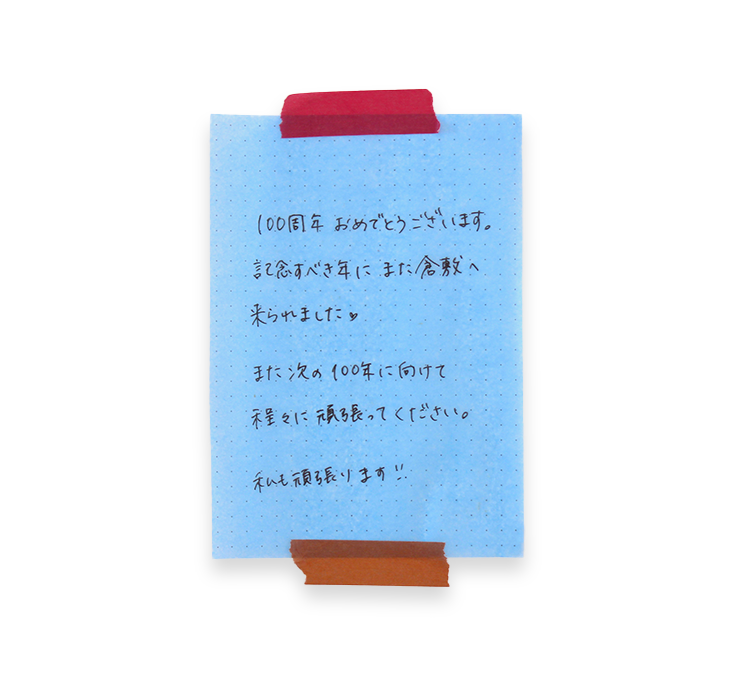 100周年 おめでとうございます。
記念すべき年に また倉敷へ
来られました♥
また次の100年に向けて
程々に頑張ってください。
私も頑張ります!!